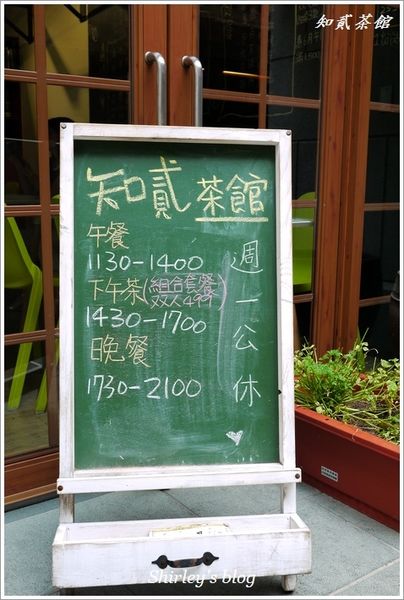 知貳茶館
知貳茶館
午餐
1130-1400
下午茶(組合套餐
双人499)
1430-1700
晚餐
1730-2100
週一公休
Shirley's blog